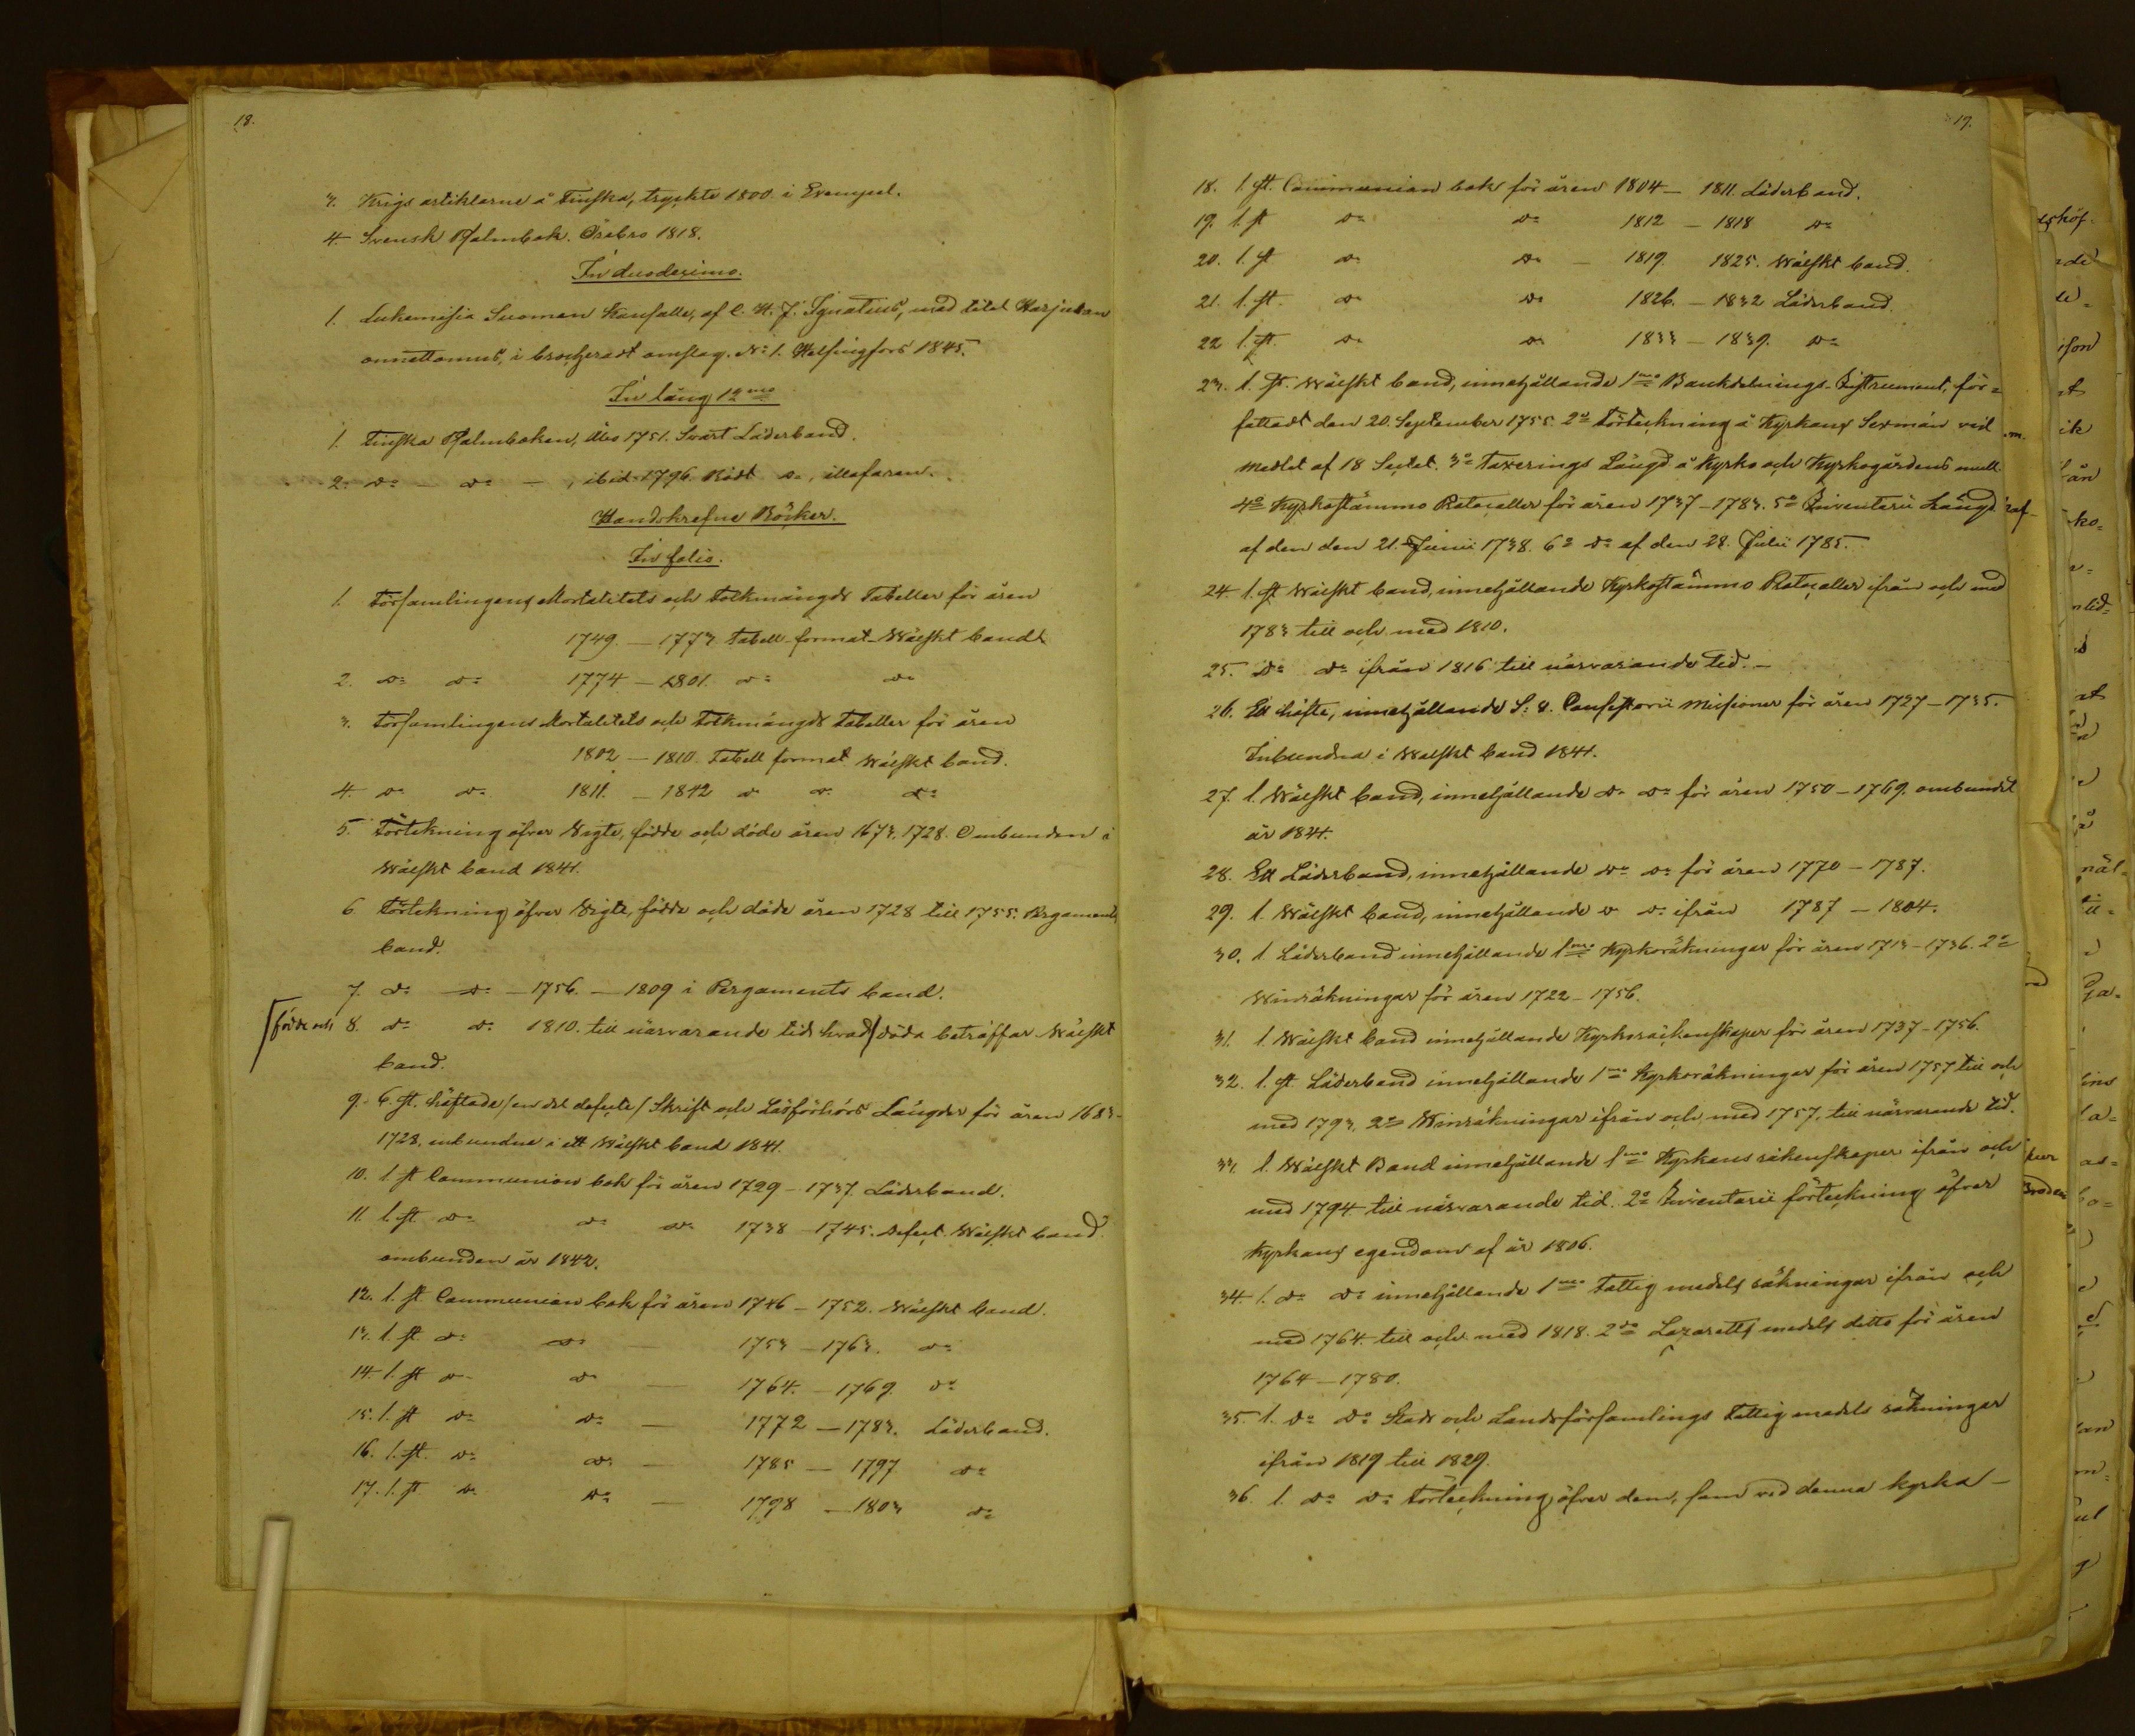 18.
3. Krigs artiklarne å Finska, tryckte 1800. i Exempel.
4. Svensk Psalmbok. Örebro 1818.
In duodecimo.
1. Lukemisia Suomen Kansalle, af C. H. J. Ignatius, med titel Harjukan
onnettomus, i brocheradt omslag. No 1. Helsingfors 1845.
In lång 12mo
1. Finska Psalmboken, Åbo 1751. Svart Läderband.
2. do — do — , ibid. 1796. Rödt do, illafaren.
Handskrefne Böcker.
In folio.
1. Församlingens Mortalitets och Folkmängds Tabeller för åren
1749. — 1773 tabell-format Wälskt bandt
2. do do 1774 — 1801. do do
3. Församlingens Mortalitets och Folkmängds tabeller för åren
1802 — 1810. Tabell format Wälskt band.
4. do do 1811. — 1842 do do do
5. Förtekning öfver Vigte, födde och döde åren 1673. 1728. Ombunden i
Wälskt band 1841.
6 Förtekning öfver Vigte, födde och döde åren 1728 till 1755. Pergaments
band.
7. do — do — 1756. — 1809 i Pergaments band.
födde och 8. do do 1810. till närvarande tid hvad döda beträffar Wälskt
band.
9. 6. st. häftade /en del defecte/ Skrift och Läsförhörs Längder för åren 1683-
1728, inbundne i ett Wälskt band 1841.
10. 1 st Communion bok för åren 1729 – 1737. Läderband.
11. 1. st do do do 1738 – 1745. defect. Wälskt band
ombunden år 1842.
12. 1. st Communion bok för åren 1746 – 1752. Wälskt band.
13. 1. st. do do — 1753 – 1763. do
14. 1. st do do — 1764. – 1769. do
15. 1. st do do — 1772 – 1783. Läderband.
16. 1. st. do do — 1785 — 1797 do
17. 1. st do do — 1798 — 1803 do
19.
18. 1. st. Communion bok för åren 1804 — 1811. Läderband.
19. 1. st do do 1812 – 1818 do
20. 1. st do do — 1819. 1825. Wälskt band.
21. 1. st. do do 1826. – 1832 Läderband.
22 1. st. do do 1833 – 1839. do
23. 1. st. Wälskt band, innehållande 1mo Bankdelnings-Instrument, för=
fattadt den 20. September 1755. 2o Förteckning å Kyrkans Sexmän vid
medlet af 18 Seclet. 3o Taxerings Längd å Kyrko och Kyrkogårdens mull
4o Kyrkostämmo Protocaller för åren 1737 – 1783. 5o Inventarii Längd
af den den 21. Junii 1738. 6o do af den 28. Julii 1785.
24. 1. st Wälskt band, innehållande Kyrkostämmo Protocaller ifrån och med
1783 till och med 1810.
25. do do ifrån 1816 till närvarande tid. —
26. Ett häfte, innehållande S: V. Consistorii Missioner för åren 1727 – 1735.
Inbundna i Wälskt band 1841.
27. 1. Wälskt band, innehållande do do för åren 1750 – 1769. ombundit
år 1841.
28. Ett Läderband, innehållande do do för åren 1770 – 1787.
29. 1. Wälskt band, innehållande do do ifrån 1787 – 1804.
30. 1 Läderband innehållande 1mo Kyrkoräkningar för åren 1713 – 1736. 2o
Winräkningar för åren 1722 – 1756.
31. 1. Wälskt band innehållande Kyrkoräkenskaper för åren 1737 – 1756.
32. 1. st. Läderband innehållande 1mo Kyrkoräkningar för åren 1757 till och
med 1793, 2do Winräkningar ifrån och med 1757. till närvarande tid.
33. 1. Wälskt Band innehållande 1mo Kyrkans räkenskaper ifrån och
med 1794 till närvarande tid. 2o Inventarii förteckning öfver
Kyrkans egendom af år 1806.
34. 1. do do innehållande 1mo Fattig medels räkningar ifrån och
med 1764 till och med 1818. 2do Lazaretts medels ditto för åren
1764 — 1780.
35. 1. do do Stads och Landsförsamlings Fattig medels räkningar
ifrån 1819 till 1829.
36. 1. do do Förteckning öfver dem, som vid denna kyrka —